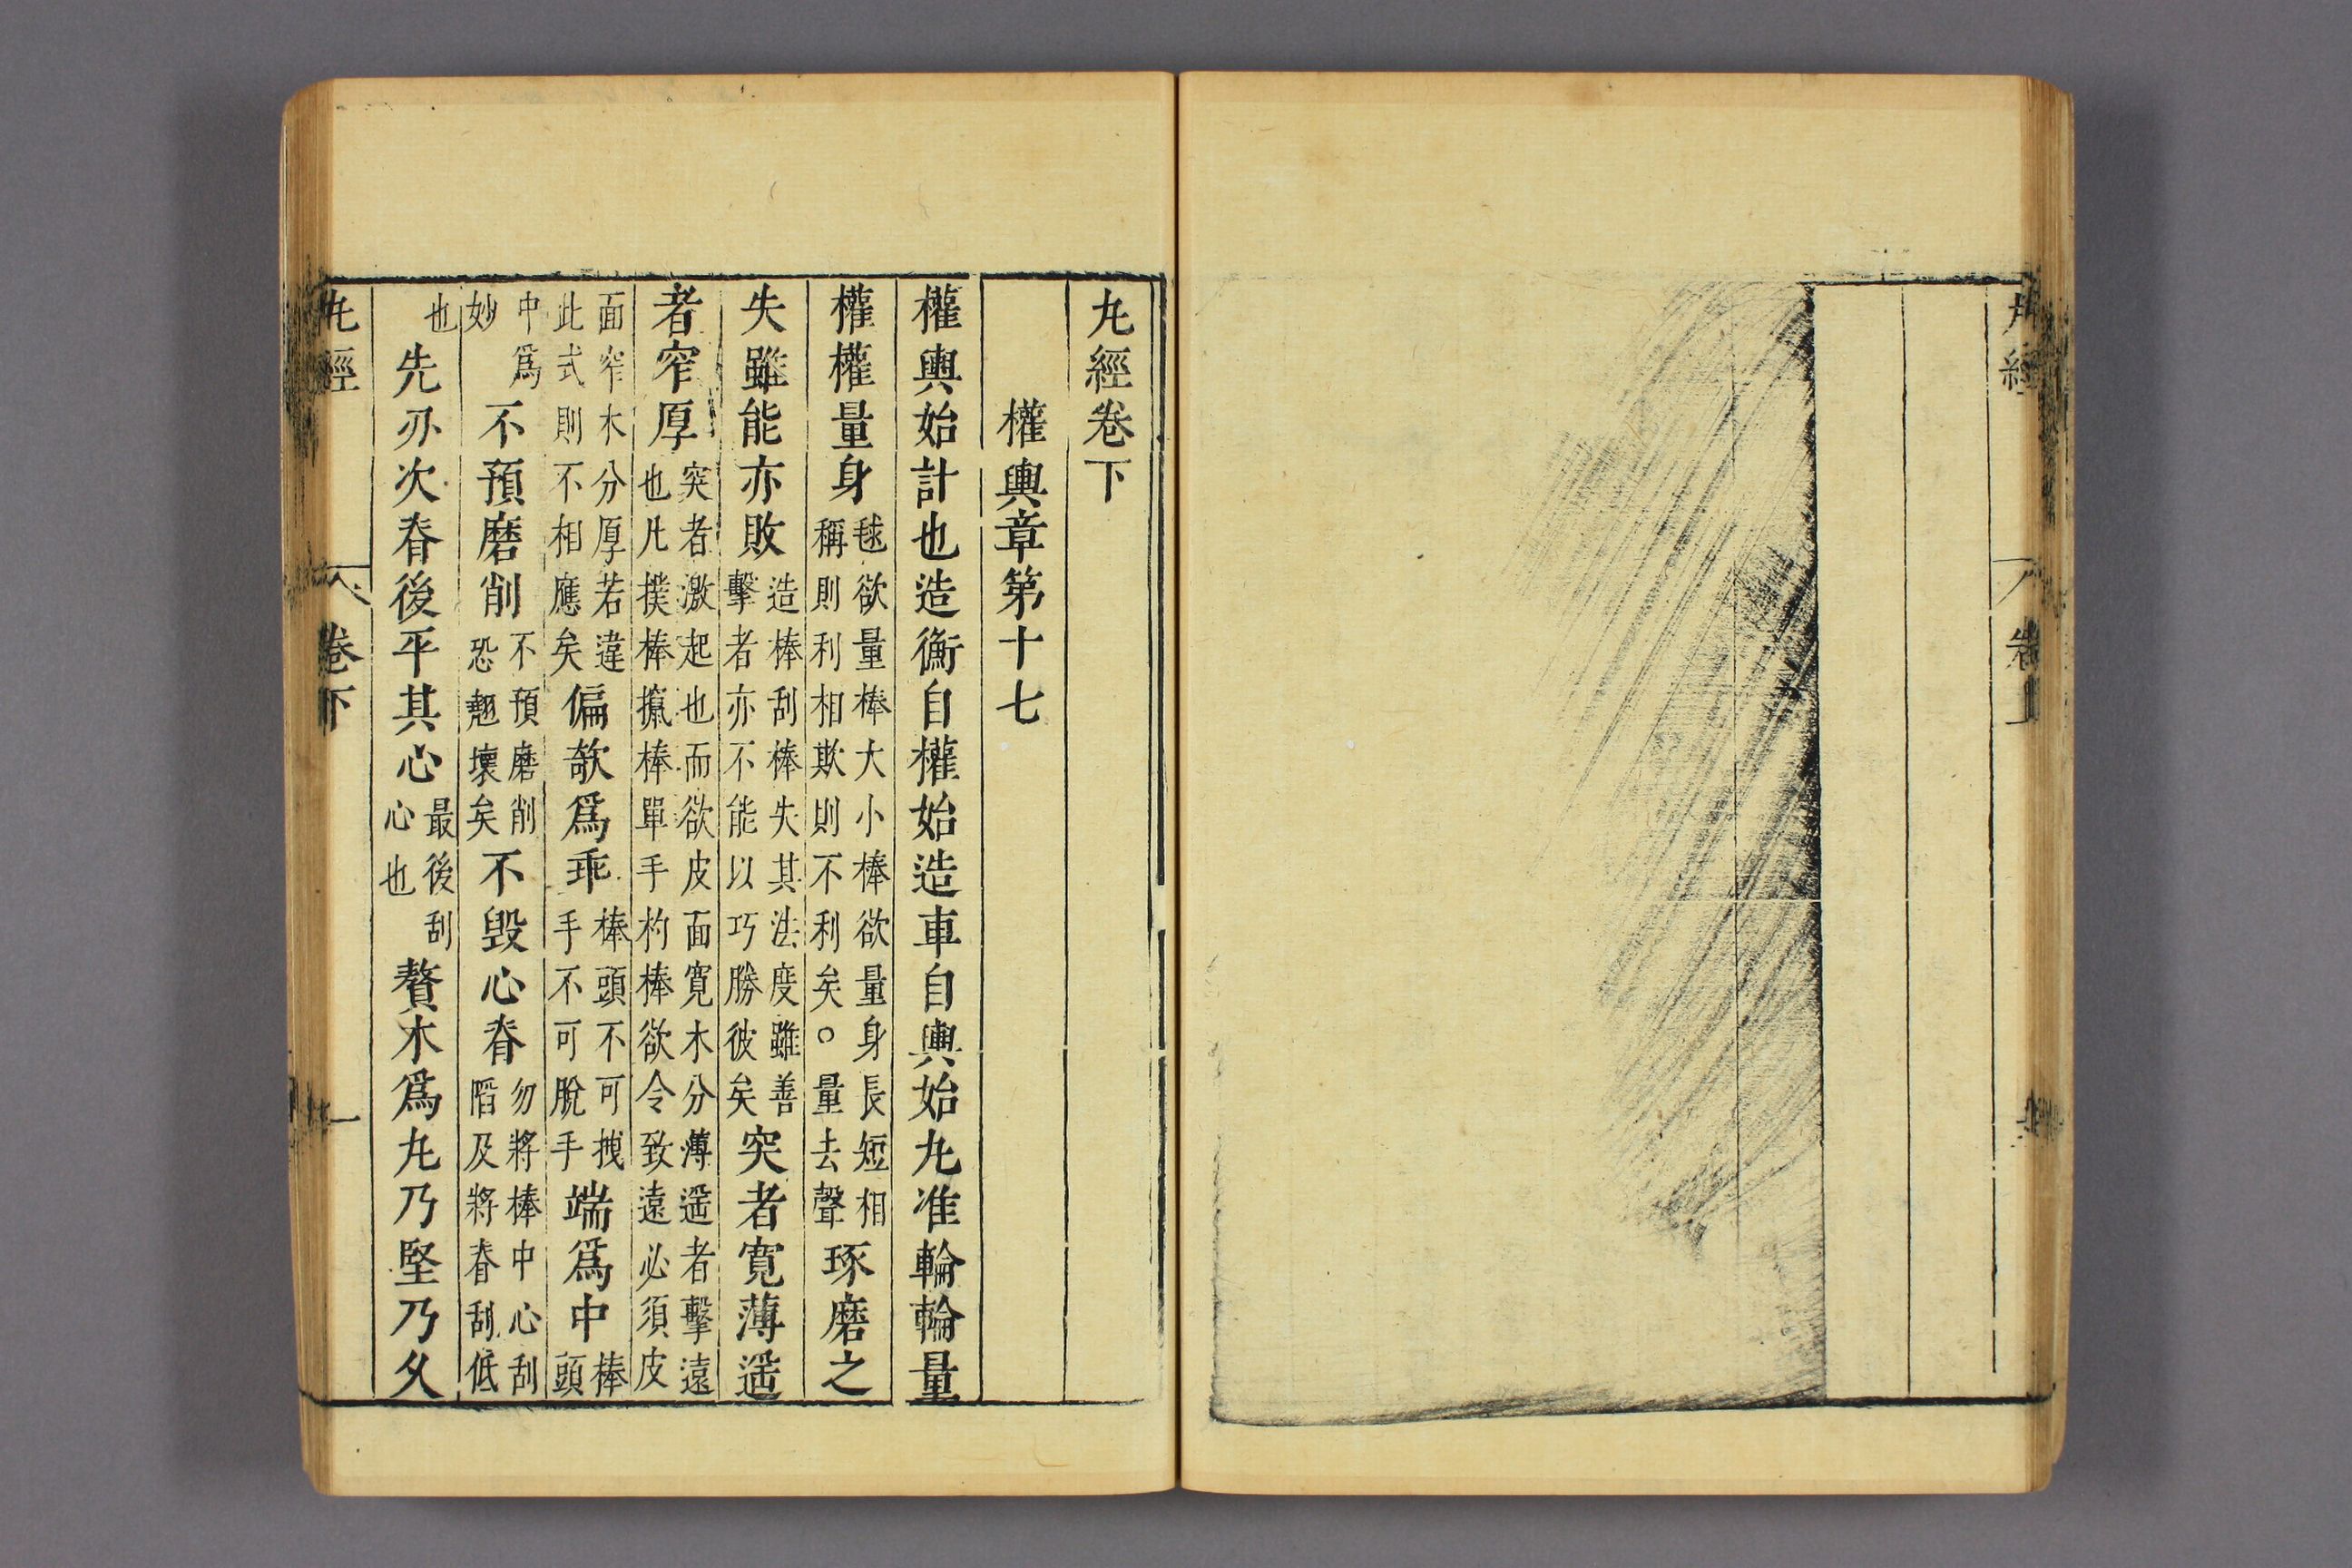 丸經
卷上
丸經卷下
權輿章第十七
權輿始計也造衡自權始造車自輿始丸准輪輪量
權權量身毬欲量棒大小棒欲量身長短相稱則利相欺則不利矣○量去聲琢磨之
失雖能亦敗造棒刮棒失其法度雖善擊者亦不能以巧勝彼矣突者寬薄遥
者窄厚突者激起也而欲皮面寬木分薄遥者擊遠也凡撲棒攛棒單手杓棒欲令致遠必須皮
面窄木分厚若違此式則不相應矣偏欹爲乖棒頭不可拽手不可脫手端爲中棒頭
中爲妙不預磨削不預磨削恐翹壞矣不毁心脊勿將棒中心刮䧟及將脊刮低
也先刃次脊後平其心最後刮心也贅木爲丸乃堅乃久
丸經
卷下
一